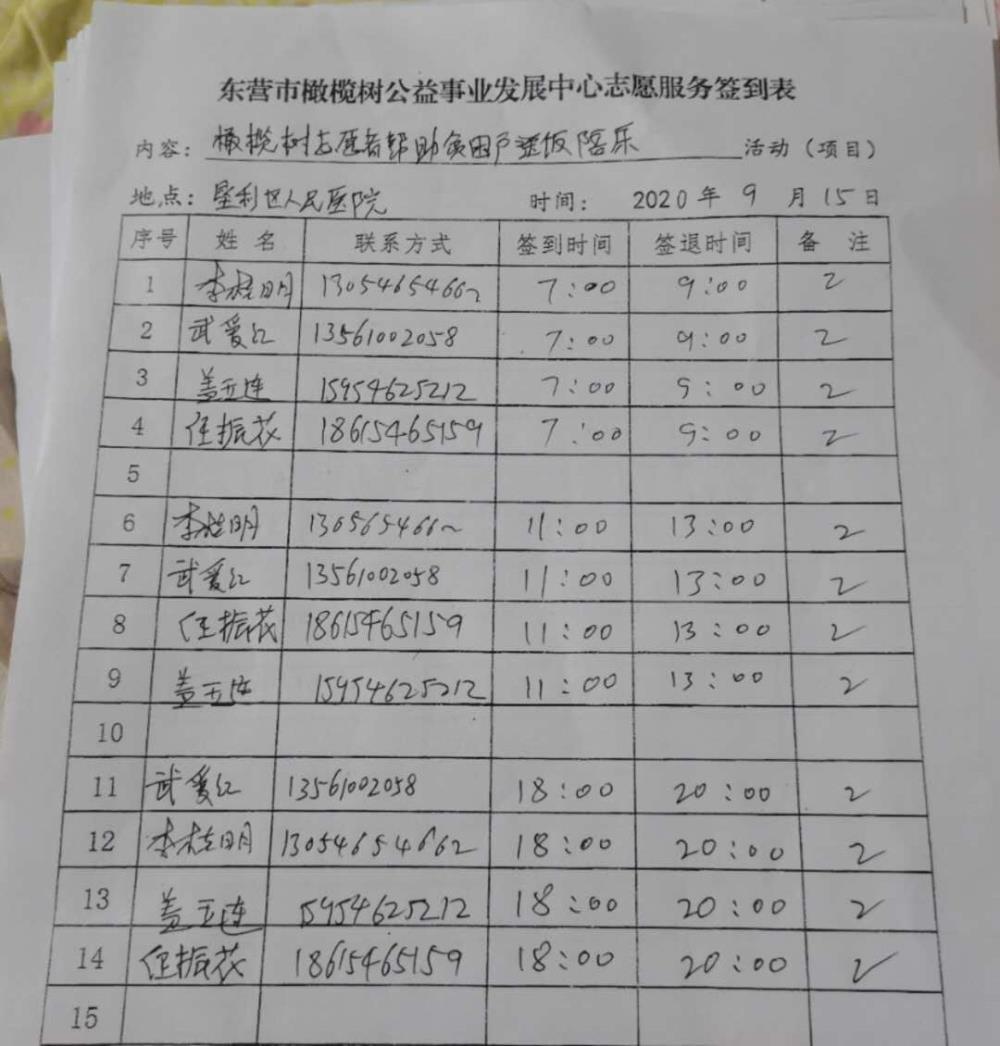 东营市橄榄树公益事业发展中心志愿服务签到表
内容：橄榄树志愿者帮助贫困户送饭陪乐 活动（项目）
地点：垦利区人民医院 时间： 2020 年 9 月 15 日
序号 姓名 联系方式 签到时间 签退时间 备注
1 李桂明 13054654662 7:00 9:00 2
2 武爱红 13561002058 7:00 9:00 2
3 盖玉连 15954625212 7:00 9:00 2
4 任振花 18615465159 7:00 9:00 2
5
6 李桂明 1305654662 11:00 13:00 2
7 武爱红 13561002058 11:00 13:00 2
8 任振花 18615465159 11:00 13:00 2
9 盖玉连 15954625212 11:00 13:00 2
10
11 武爱红 13561002058 18:00 20:00 2
12 李桂明 13054654662 18:00 20:00 2
13 盖玉连 15954625212 18:00 20:00 2
14 任振花 18615465159 18:00 20:00 2
15